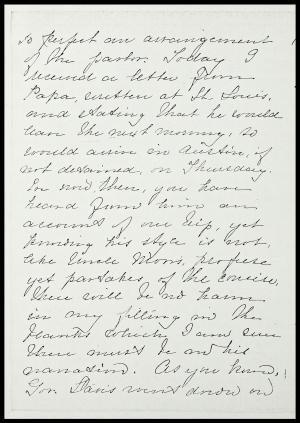 so perfect an arrangement
of the parlor. Today I
received a letter from
Papa, written at St. Louis,
and stating that he would
leave the next morning, so
would arrive in Austin, if
not detained, on Thursday.
now, then, you have
heard from him an
account of our trip, yet
knowing his style is not,
like Uncle Mons, profuse
yet partakes of the concise,
there will be no harm
in my filling in the
blanks which I am sure
there must be in his
narration. As you know,
Gov. Davis went down on